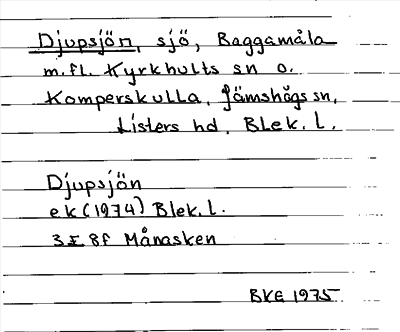 Djupsjön, sjö, Baggamåla
m.fl. Kyrkhults sn o.
Komperskulla, Jämshögs sn,
Listers hd, Blek. l.
Djupsjön
ek (1974) Blek. l.
3E 8f Månasken
BKE 1975